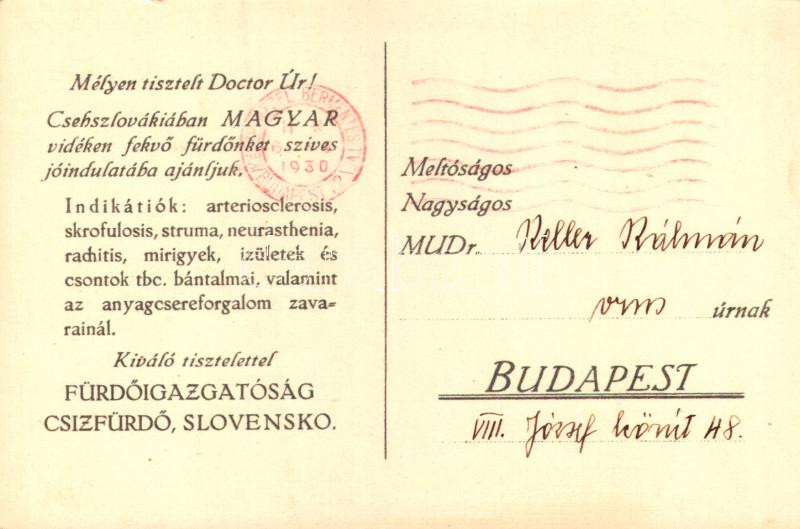 Mélyen tisztelt Doctor Úr!
Csehszlovákiában MAGYAR
vidéken fekvő fürdőnket szives
jóindulatába ajánljuk.
Indikátiók: arteriosclerosis,
skrofulosis, struma, neurasthenia,
rachitis, mirigyek, izületek és
csontok tbc. bántalmai, valamint
az anyagcsereforgalom zava-
rainál.
Kiváló tisztelettel
FÜRDŐIGAZGATÓSÁG
CSIZFÜRDŐ, SLOVENSKO.
BÉRMENTESÍTVE
1930
BUDAPEST
Meltóságos
Nagyságos
MUDr. Keller Kálmán
orvos úrnak
BUDAPEST
VIII. József körút 48.